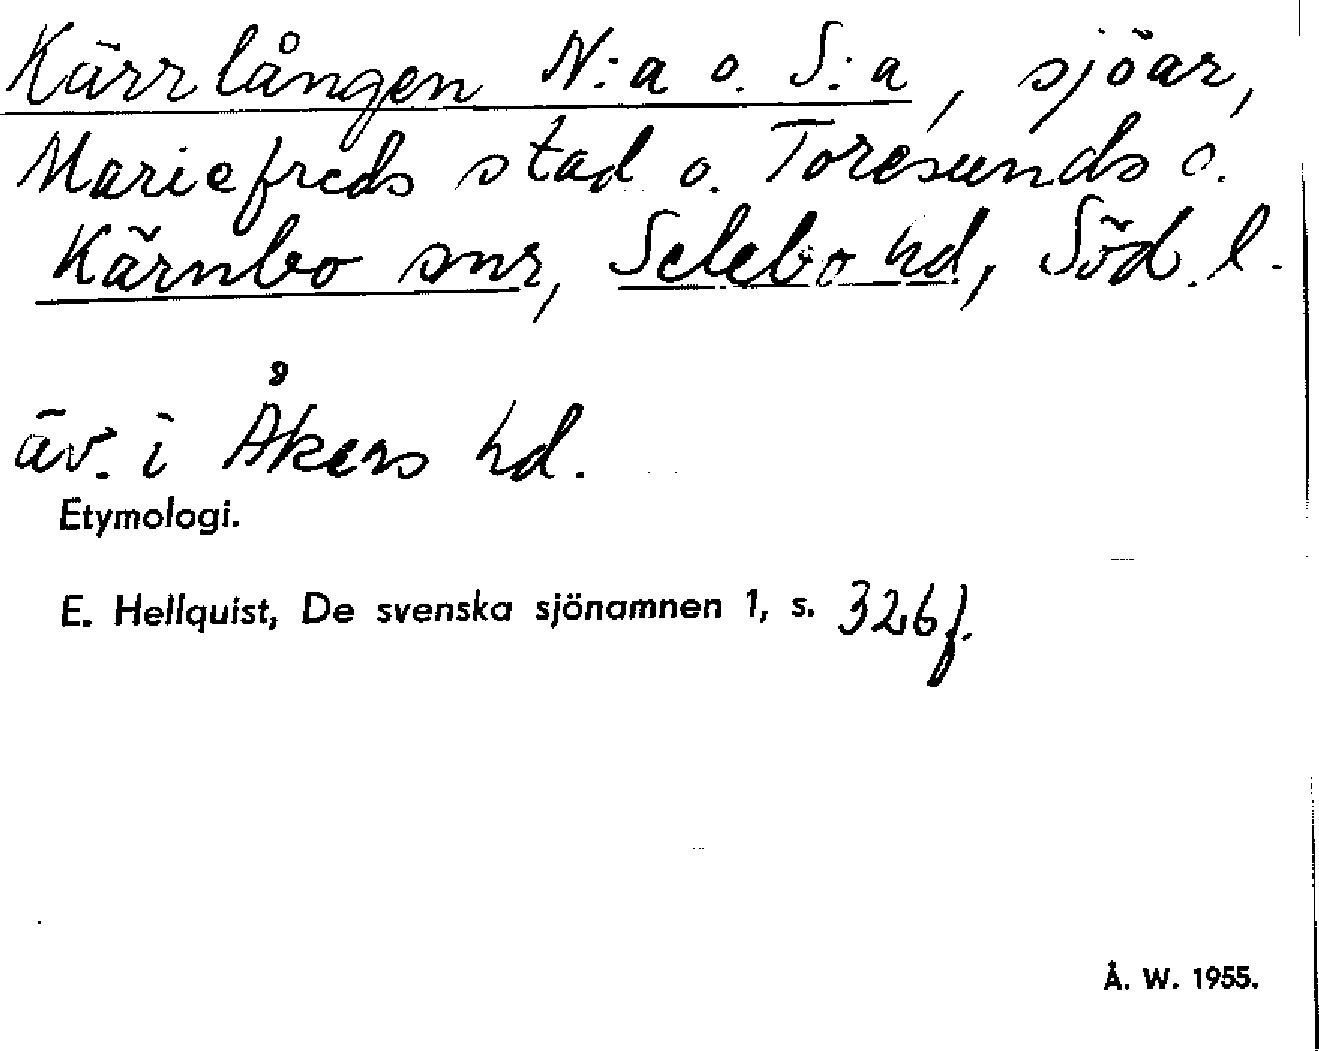 Kärrlången N:a o. S:a, sjöar,
Mariefreds stad o. Toresunds o.
Kärnbo snr, Selebo hd, Söd. l.
äv. i Åkers hd.
Etymologi.
E. Hellquist, De svenska sjönamnen 1, s. 326 f.
Å. W. 1955.